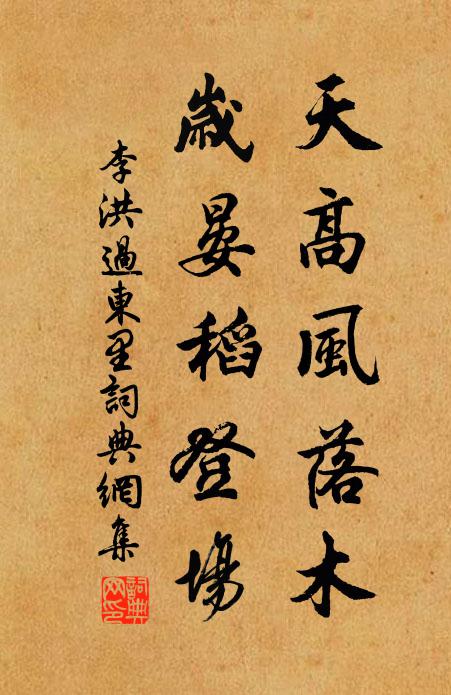 天高風落木
歲晏稻登場
李洪過東里詞典網集
詞典網印